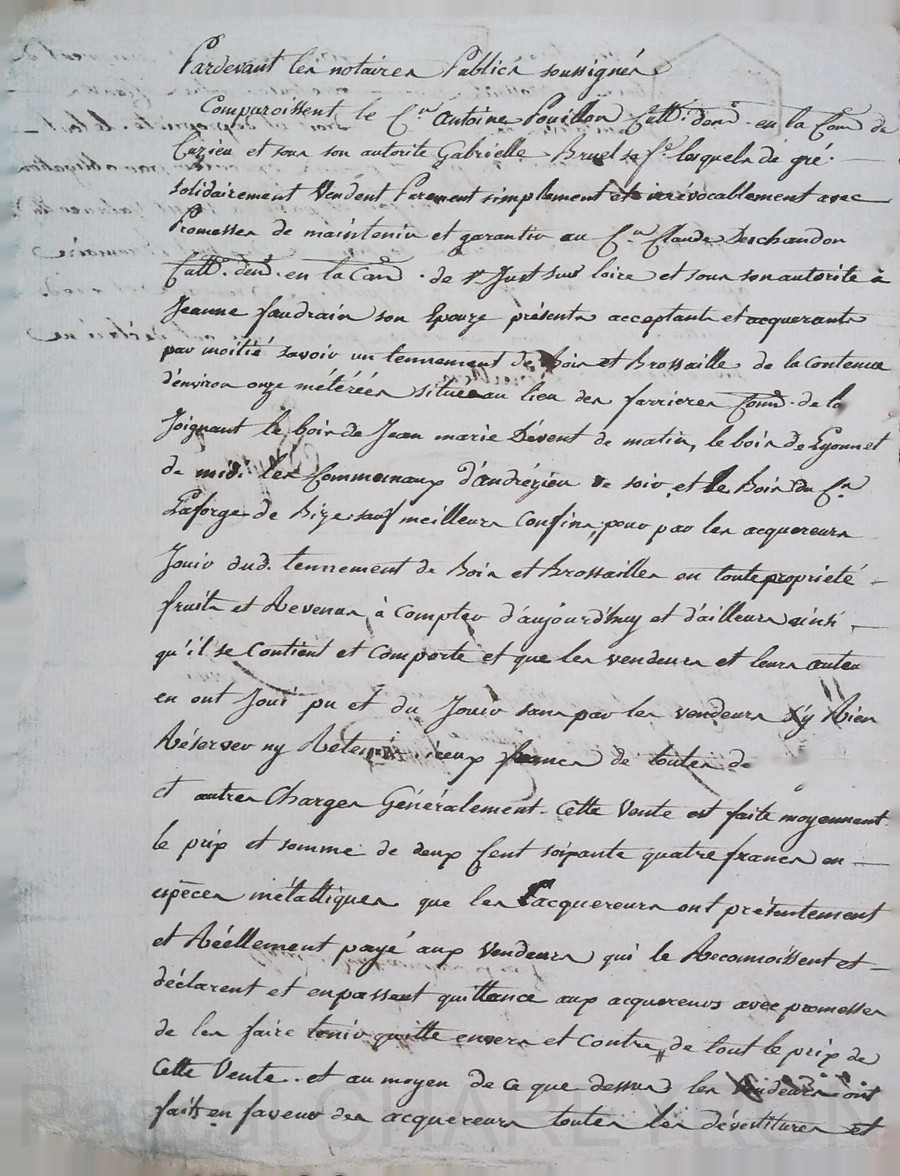 Pardevant les notaires Publics soussignés
Comparoissent le C.en Antoine Pouillon Cult. dem.t en la Com.e de
Cuzieu et sous son autorité Gabrielle Bruel sa f.e lesquels de gré
solidairement Vendent Purement simplement et irrévocablement avec
Promesses de maintenir et garantir au C.en Claude Deschandon
Cult. dem.t en la Com.e de St Just sur loire et sous son autorité à
Jeanne faudrain son Epouze présents acceptants et acquerants
par moitié savoir un tennement de Bois et Brossaille de la Contenue
d'environ onze métérées situé au lieu des farrieres Com.e de la
Joignant le bois de Jean marie Dévent de matin, le bois de Lyonnet
de midi les Communaux d'andrézieu de soir et le Bois du C.en
Laforge de Bize sauf meilleurs Confins, pour par les acquereurs
Jouir dud. tennement de Bois et Brossailles en toute propriété
fruits et Revenus à Compter d'aujourd'huy et d'ailleurs ainsi
qu'il se Contient et Comporte et que les vendeurs et leurs auteu
en ont Joui pu et du Jouir sans par les vendeurs s'y Rien
Réserver ny Retenir iceux francs de toutes de
et autres Charges Généralement. Cette Vente est faite moyennant
le prix et somme de deux Cent soixante quatre francs en
espèces métalliques que les acquereurs ont présentement
et Réellement payé aux Vendeurs qui le Reconnoissent et
déclarent et en passent quittance aux acquereurs avec promesses
de les faire tenir quitte envers et Contre, de tout le prix de
Cette Vente. et au moyen de ce que dessus les Vendeurs ont
faits en faveur des acquereurs toutes les dévestitures et
Pascal CHARLEYRON